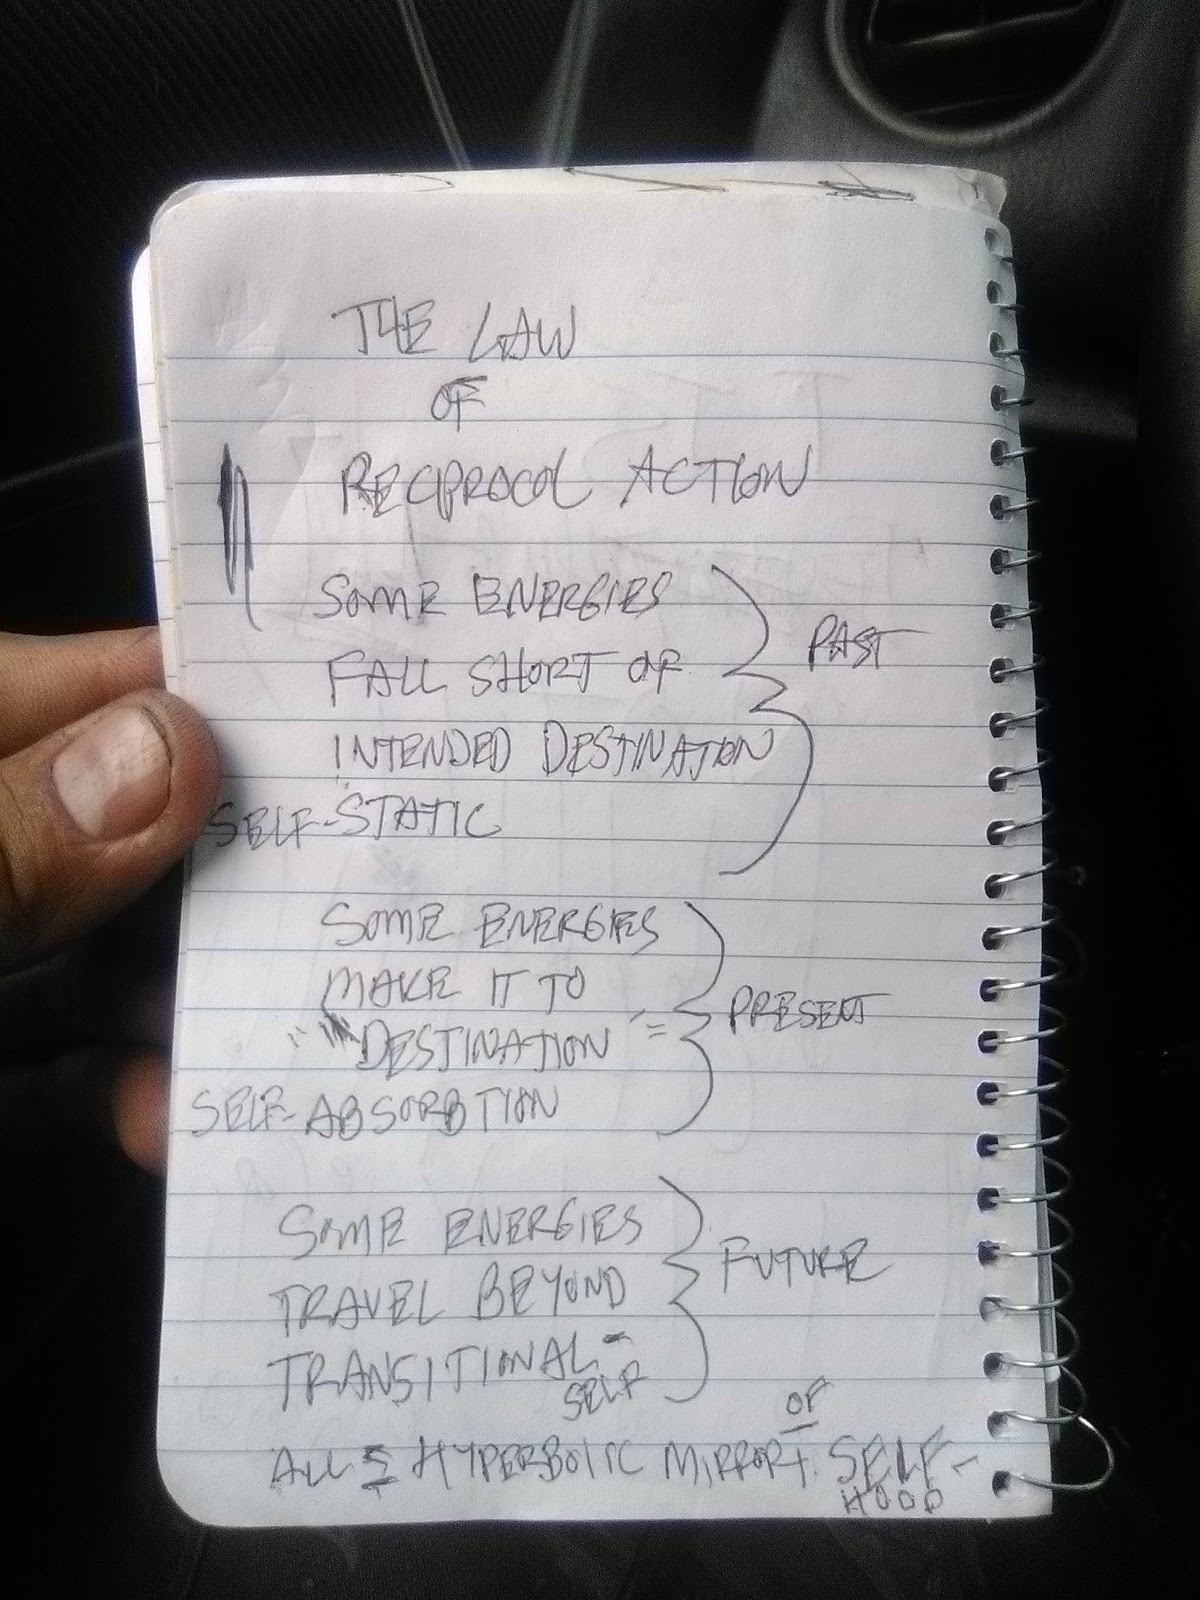 THE LAW
OF
RECIPROCOL ACTION
SOME ENERGIES
FALL SHORT OF
INTENDED DESTINATION
SELF-STATIC
PAST
SOME ENERGIES
MAKE IT TO
"DESTINATION" =
SELF-ABSORBTION
PRESENT
SOME ENERGIES
TRAVEL BEYOND
TRANSITIONAL-
SELF
FUTURE
ALL = HYPERBOLIC MIRROR OF SELF-
HOOD